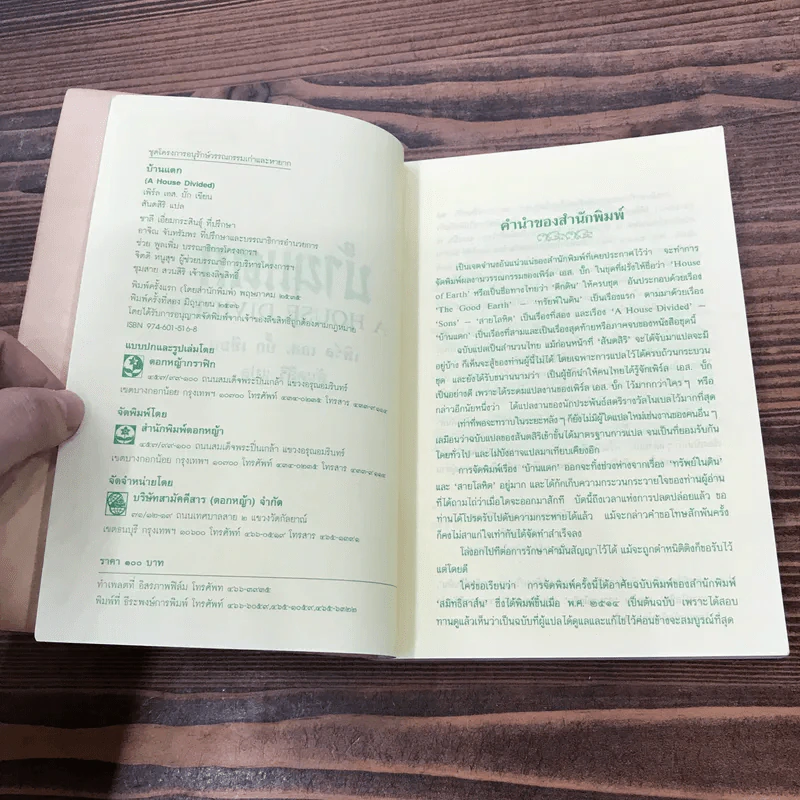 ชุดโครงการอนุรักษ์วรรณกรรมเก่าและหายาก
บ้านแตก
(A House Divided)
เพิร์ล เอส. บั๊ก เขียน
สันตสิริ แปล
ชาลี เอี่ยมกระสินธุ์ ที่ปรึกษา
อาจิณ จันทรัมพร ที่ปรึกษาและบรรณาธิการอำนวยการ
ช่วย พูลเพิ่ม บรรณาธิการโครงการฯ
จิตติ หนูสุข ผู้ช่วยบรรณาธิการบริหารโครงการฯ
ชุมสาย สวนสิริ เจ้าของลิขสิทธิ์
พิมพ์ครั้งแรก (โดยสำนักพิมพ์) พฤษภาคม ๒๕๓๕
พิมพ์ครั้งที่สอง มิถุนายน ๒๕๓๖
โดยได้รับการอนุญาตจัดพิมพ์จากเจ้าของลิขสิทธิ์ถูกต้องตามกฎหมาย
ISBN 974-601-516-8
แบบปกและรูปเล่มโดย
ดอกหญ้ากราฟิก
๔๕๗/๙๙-๑๐๐ ถนนสมเด็จพระปิ่นเกล้า แขวงอรุณอมรินทร์
เขตบางกอกน้อย กรุงเทพฯ ๑๐๗๐๐ โทรศัพท์ ๔๓๔-๐๒๓๕ โทรสาร ๔๓๓-๙๑๑๔
จัดพิมพ์โดย
สำนักพิมพ์ดอกหญ้า
๔๕๗/๙๙-๑๐๐ ถนนสมเด็จพระปิ่นเกล้า แขวงอรุณอมรินทร์
เขตบางกอกน้อย กรุงเทพฯ ๑๐๗๐๐ โทรศัพท์ ๔๓๔-๐๒๓๕ โทรสาร ๔๓๓-๙๑๑๔
จัดจำหน่ายโดย
บริษัทสามัคคีสาร (ดอกหญ้า) จำกัด
๓๑/๑๒-๑๙ ถนนเทศบาลสาย ๒ แขวงวัดกัลยาณ์
เขตธนบุรี กรุงเทพฯ ๑๐๖๐๐ โทรศัพท์ ๔๖๕-๐๕๑๙ โทรสาร ๔๖๕-๑๙๙๑
ราคา ๑๐๐ บาท
ทำเพลตที่ อิสรภาพฟิล์ม โทรศัพท์ ๔๖๖-๓๓๓๕
พิมพ์ที่ ธีระพงษ์การพิมพ์ โทรศัพท์ ๔๖๖-๖๐๕๙,๔๖๕-๓๑๐๕,๔๖๕-๖๓๒๒
คำนำของสำนักพิมพ์
เป็นเจตจำนงอันแน่วแน่ของสำนักพิมพ์ที่เคยประกาศไว้ว่า จะทำการ
จัดพิมพ์ผลงานวรรณกรรมของเพิร์ล เอส. บั๊ก ในชุดที่ฝรั่งให้ชื่อว่า 'House
of Earth' หรือเป็นชื่อทางไทยว่า 'ตึกดิน' ให้ครบชุด อันประกอบด้วยเรื่อง
'The Good Earth' — 'ทรัพย์ในดิน' เป็นเรื่องแรก ตามมาด้วยเรื่อง
'Sons' — 'สายโลหิต' เป็นเรื่องที่สอง และเรื่อง 'A House Divided' —
'บ้านแตก' เป็นเรื่องที่สามและเป็นเรื่องสุดท้ายหรือภาคจบของหนังสือชุดนี้
ฉบับแปลเป็นสำนวนไทย แม้ก่อนหน้าที่ 'สันตสิริ' จะได้จับมาแปลจะมี
อยู่บ้าง ก็เห็นจะสู้ของท่านผู้นี้ไม่ได้ โดยเฉพาะการแปลไว้ได้ครบถ้วนกระบวน
ชุด และยังได้รับขนานนามว่า เป็นผู้ชักนำให้คนไทยได้รู้จักเพิร์ล เอส. บั๊ก
เป็นอย่างดี เพราะได้ระดมแปลงานของเพิร์ล เอส. บั๊ก ไว้มากกว่าใครๆ หรือ
กล่าวอีกนัยหนึ่งว่า ได้แปลงานของนักประพันธ์สตรีรางวัลโนเบลไว้มากที่สุด
เท่าที่พอจะทราบในระยะหลังๆ ก็ยังไม่มีผู้ใดแปลใหม่เช่นงานของคนอื่นๆ
เสมือนว่าฉบับแปลของสันตสิริเข้าขั้นได้มาตรฐานการแปล จนเป็นที่ยอมรับกัน
โดยทั่วไป และไม่บังอาจแปลมาเทียบเคียงอีก
การจัดพิมพ์เรื่อง 'บ้านแตก' ออกจะทิ้งช่วงห่างจากเรื่อง 'ทรัพย์ในดิน'
และ 'สายโลหิต' อยู่มาก และได้กักเก็บความกระวนกระวายใจของท่านผู้อ่าน
ที่ได้ถามไถ่ว่าเมื่อใดจะออกมาสักที บัดนี้ถึงเวลาแห่งการปลดปล่อยแล้ว ขอ
ท่านได้โปรดรับไปดับความกระหายได้แล้ว แม้จะกล่าวคำขอโทษสักพันครั้ง
ก็คงไม่สาแก่ใจเท่ากับได้จัดทำสำเร็จลง
โล่งอกไปทีต่อการรักษาคำมั่นสัญญาไว้ได้ แม้จะถูกตำหนิติติงก็ขอรับไว้
แต่โดยดี
ใคร่ขอเรียนว่า การจัดพิมพ์ครั้งนี้ได้อาศัยฉบับพิมพ์ของสำนักพิมพ์
'สมิทธิสาส์น' ซึ่งได้พิมพ์ขึ้นเมื่อ พ.ศ. ๒๕๑๔ เป็นต้นฉบับ เพราะได้สอบ
ทานดูแล้วเห็นว่าเป็นฉบับที่ผู้แปลได้ดูแลและแก้ไขไว้ค่อนข้างจะสมบูรณ์ที่สุด